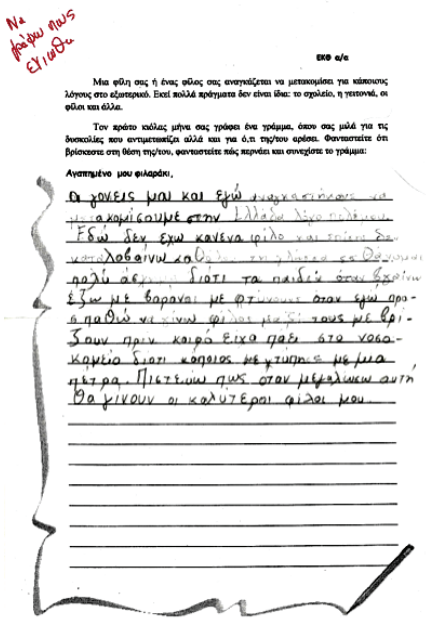 Να
γράψω πως
ένιωθα
ΕΚΘ α/α
Μια φίλη σας ή ένας φίλος σας αναγκάζεται να μετακομίσει για κάποιους
λόγους στο εξωτερικό. Εκεί πολλά πράγματα δεν είναι ίδια: το σχολείο, η γειτονιά, οι
φίλοι και άλλα.
Τον πρώτο κιόλας μήνα σας γράφει ένα γράμμα, όπου σας μιλά για τις
δυσκολίες που αντιμετωπίζει αλλά και για ό,τι της/του αρέσει. Φανταστείτε ότι
βρίσκεστε στη θέση της/του, φανταστείτε πώς περνάει και συνεχίστε το γράμμα:
Αγαπημένο μου φιλαράκι,
Οι γονείς μαι και εγώ αναγκαστήκαμε να
μετακομίσουμε στην Ελλάδα λόγο πολέμου.
Εδώ δεν έχω κανένα φίλο και δεν
καταλοβαίνω
πολύ διότι τα παιδιά όταν βχαίνω
έξω με βαράναι με φτύνουνε όταν εγώ προ-
σπαθώ να κάνω φίλος μαζί τους με βρί-
ζουν πριν καιρό είχα πάει στο νοσο-
κομείο διότι κάποιος με χτύπησε με μια
πέτρα. Πιστεύω πως όταν μεγαλώσω αυτή
θα γίνουν οι καλύτεροι φίλοι μου.